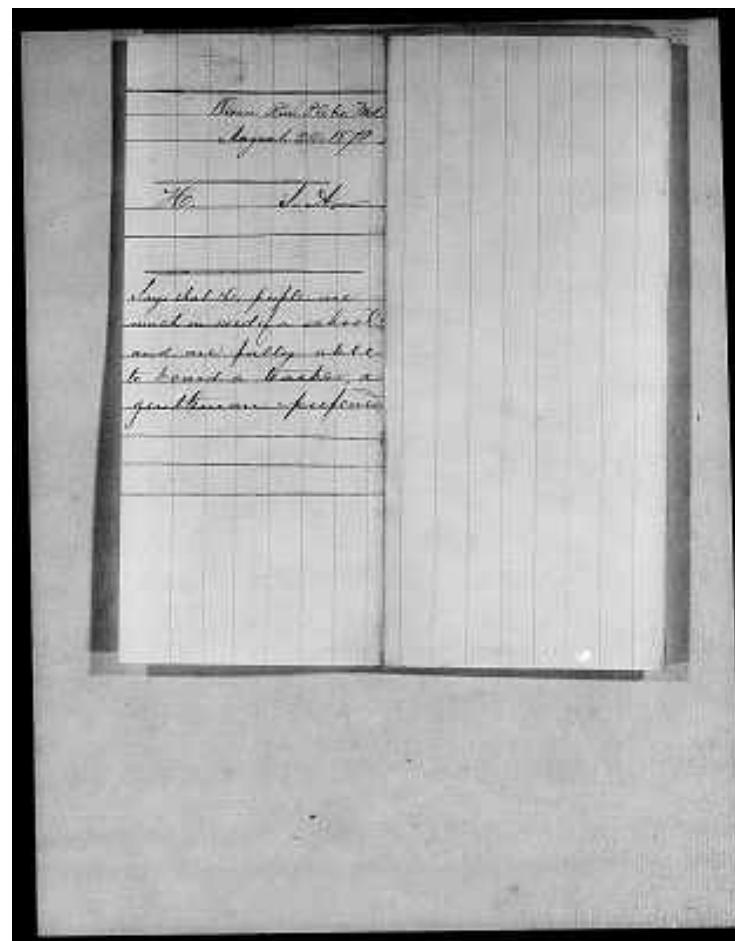 August 22 1870
H. J. A.
Says that the people are
much in need of a school
and are fully able
to board a teacher, a
gentleman prefered